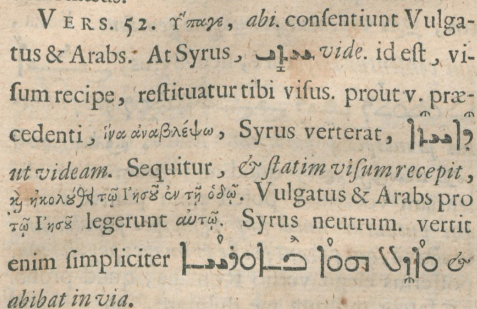 VERS. 52. ὕπαγε, abi. consentiunt Vulga-
tus & Arabs. At Syrus, ܚܙܝ vide. id est, vi-
sum recipe, restituatur tibi visus. prout v. præ-
cedenti, ἵνα ἀναβλέψω, Syrus verterat, ܕܐܚܙܐ
ut videam. Sequitur, & statim visum recepit,
καὶ ἠκολούθει τῷ Ἰησοῦ ἐν τῇ ὁδῷ. Vulgatus & Arabs pro
τῷ Ἰησοῦ legerunt αὐτῷ. Syrus neutrum. vertit
enim simpliciter ܘܐܙܠ ܗܘܐ ܒܐܘܪܚܐ &
abibat in via.